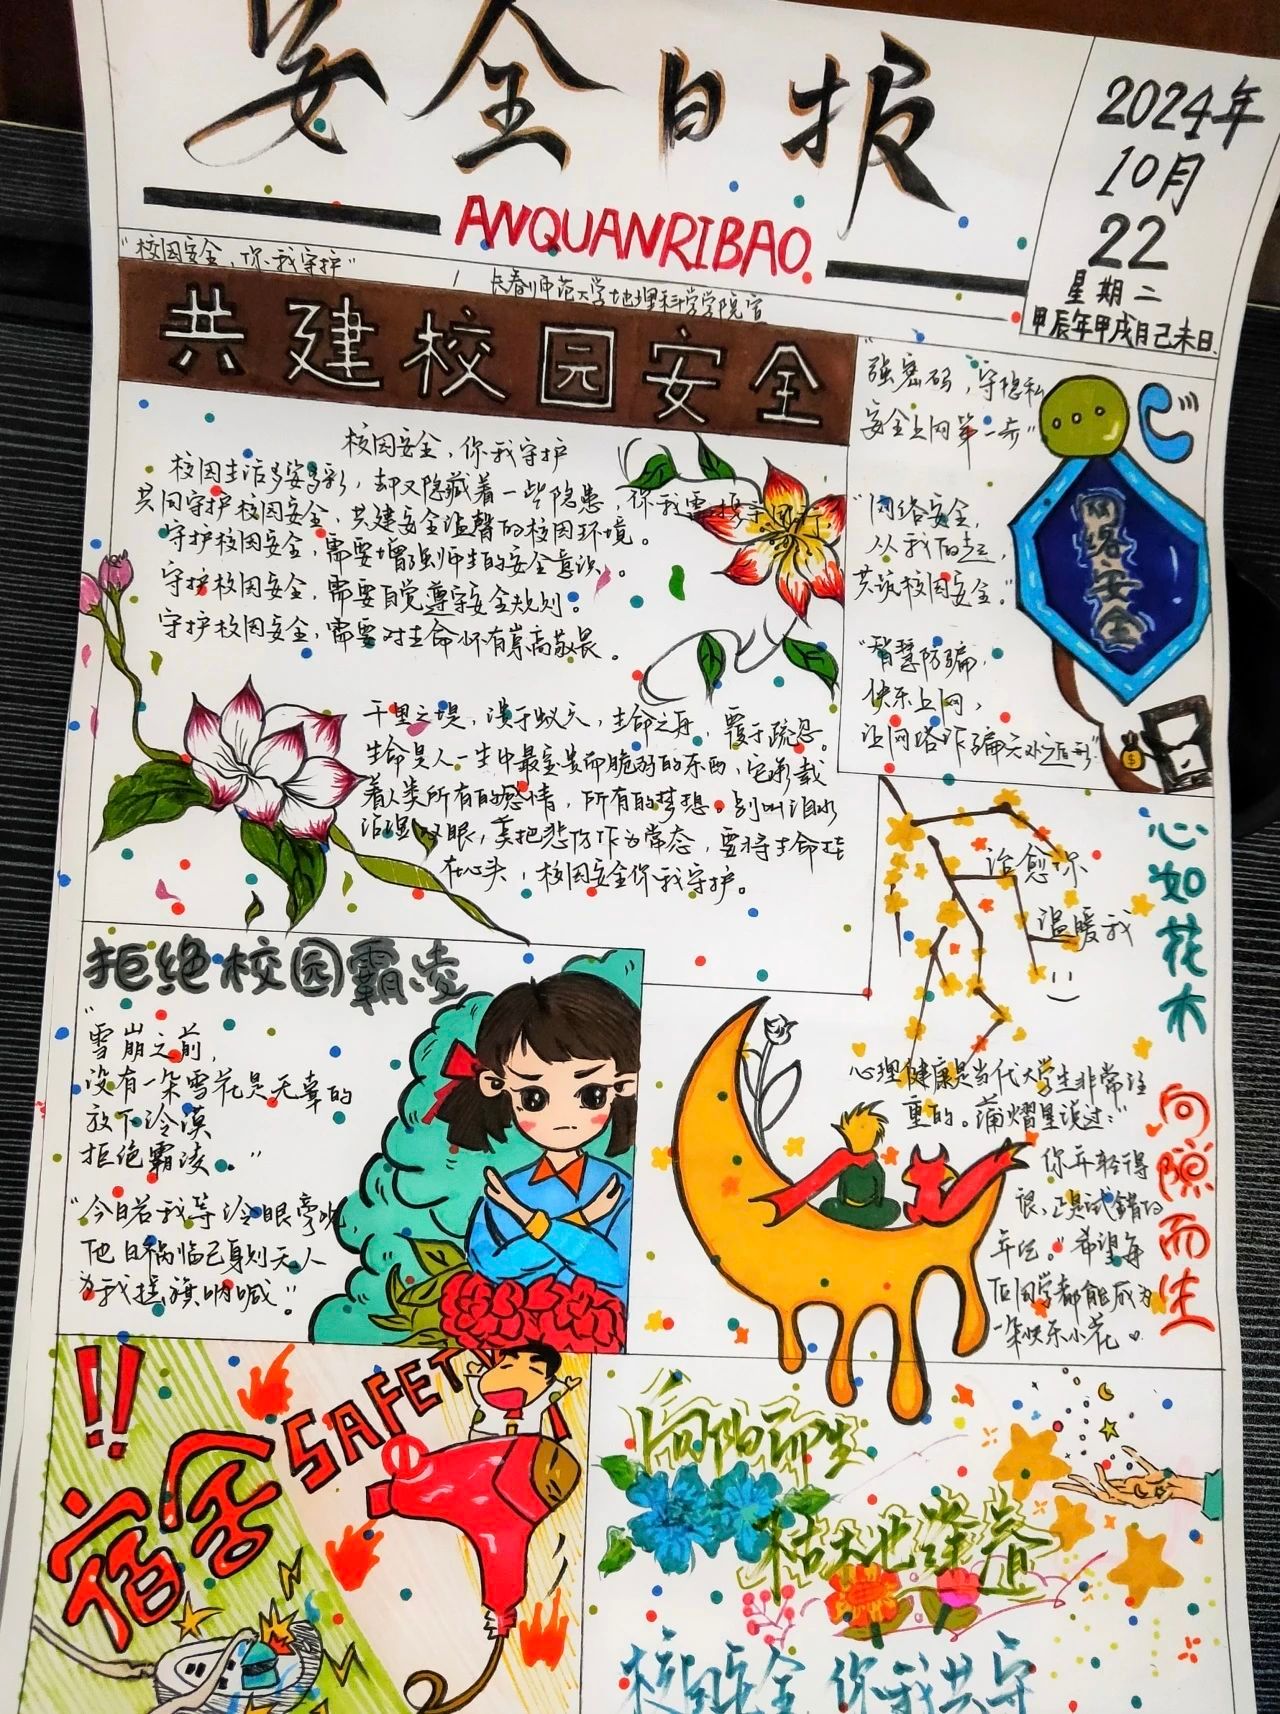 安全日报
ANQUANRIBAO
2024年
10月
22
星期二
甲辰年甲戌月己未日
"校园安全,你我守护"
长春师范大学地理科学学院宣
共建校园安全
校园安全,你我守护
校园生活多姿多彩,却又隐藏着一些隐患,你我需携手同行
共同守护校园安全,共建安全温馨的校园环境。
守护校园安全,需要增强师生的安全意识。
守护校园安全,需要自觉遵守安全规则。
守护校园安全,需要对生命怀有崇高敬畏。
千里之堤,溃于蚁穴,生命之舟,覆于疏忽。
生命是人一生中最宝贵而脆弱的东西,它承载
着人类所有的感情,所有的梦想。别叫泪水
沾湿双眼,莫把悲伤作为常态,要将生命挂
在心头,校园安全你我守护。
"强密码,守隐私
安全上网第一步"
"网络安全,
从我做起,
共筑校园安全。"
"智慧防骗,
快乐上网,
让网络诈骗无处遁形"
网络安全
治愈你
温暖我
心如花木
向阳而生
心理健康是当代大学生非常注
重的。蒲熠星说过:"
你年轻得
很,正是试错的
年纪。"希望每
位同学都能成为
一朵快乐小花。
拒绝校园霸凌
"雪崩之前,
没有一朵雪花是无辜的
放下冷漠
拒绝霸凌。"
"今日若我等冷眼旁观,
他日祸临己身则无人
为我摇旗呐喊"。
!!
宿舍
SAFETY
向阳而生
枯木逢春
校园安全 你我共守